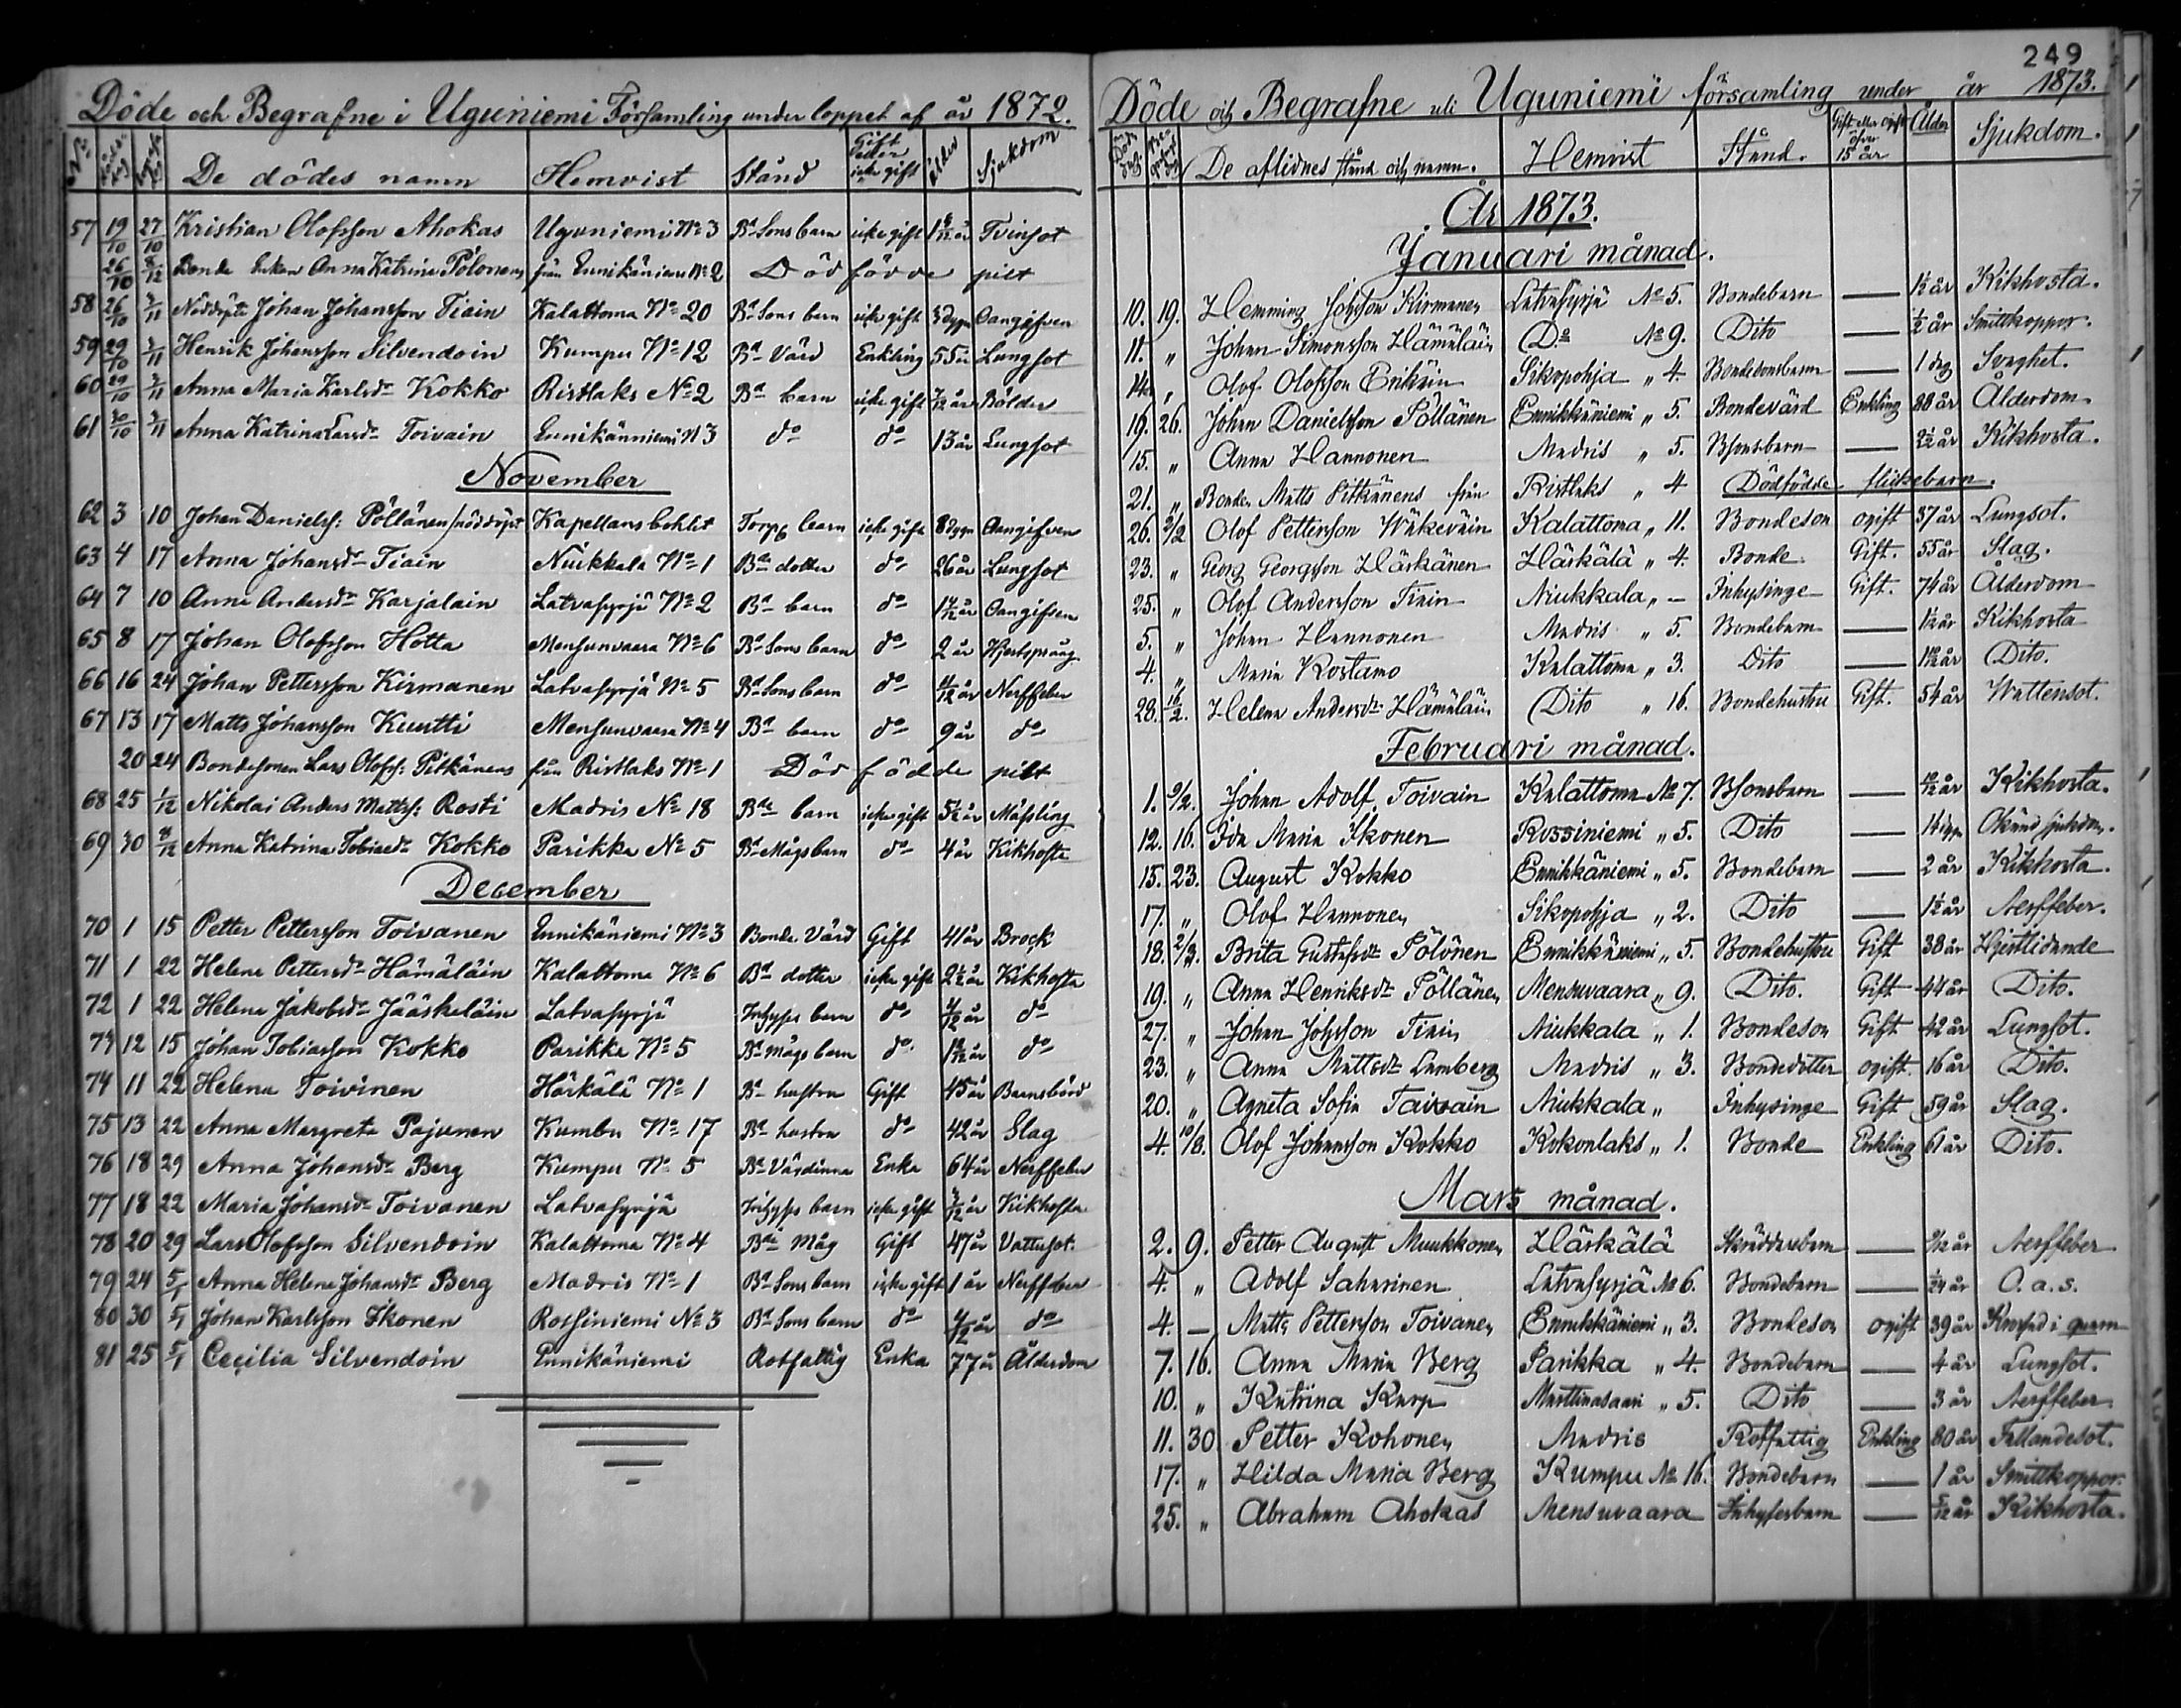 249
Döde och Begrafne i Uguniemi Församling under loppet af år 1872.
De dödes namn Hemvist Stånd Gift eller icke gift ålder Sjukdom
57 19/10 27/10 Kristian Olofsson Ahokas Uguniemi No 3 Bd Sons barn icke gift år Tvinsot
26/10 8/12 Bonde Enkan Anna Katrina Pölönens från Ennikäniemi No 2 Död födde pilt
58 26/10 3/11 Nöddöpte Johan Johansson Tiain Kalattoma No 20 Bd Sons barn icke gift 3 dygn Oangifven
59 29/10 3/11 Henrik Johansson Silvendoin Kumpu No 12 Bd Värd Enkling 55 år Lungsot
60 29/10 3/11 Anna Maria Karlsdr Kokko Ristlaks No 2 Bd barn icke gift 7/12 år Bölder
61 30/10 3/11 Anna Katrina Larsdr Toivain Ennikänniemi N 3 do do 13 år Lungsot
November
62 3 10 Johan Danielss: Pöllänen nöddöpt Kapellans bohlet Torp barn icke gift 8 dygn Oangifven
63 4 17 Anna Johansdr Tiain Niukkala No 1 Bde dotter do 26 år Lungsot
64 7 10 Anna Andersdr Karjalain Latvasyrjä No 2 Bd barn do år Oangifven
65 8 17 Johan Olofsson Hotta Mensunvaara No 6 Bd Sons barn do 2 år Hjertsprång
66 16 24 Johan Pettersson Kirmanen Latvasyrjä No 5 Bd Sons barn do år Nerffeber
67 13 17 Matts Johansson Kuutti Mensunvaara No 4 Bd barn do 9 år do
20 24 Bondesonen Lars Olofss: Pitkänens från Ristlaks No 1 Död födde pilt
68 25 1/12 Nikolai Anders Mattss: Rosti Madris No 18 Bde barn icke gift 5½ år Mässling
69 30 8/12 Anna Katrina Tobiasdr Kokko Parikka No 5 Bd Mågs barn do 4 år Kikhosta
December
70 1 15 Petter Pettersson Toivanen Ennikäniemi No 3 Bonde Värd Gift 41 år Brock
71 1 22 Helena Pettersdr Hämäläin Kalattoma No 6 Bd dotter icke gift 2½ år Kikhosta
72 1 22 Helena Jakobsdr Jääskeläin Latvasyrjä Inhyses barn do år do
74 12 15 Johan Tobiasson Kokko Parikka No 5 Bd mågs barn do år do
74 11 22 Helena Toivinen Härkälä No 1 Bd hustru Gift 45 år Barnsbörd
75 13 22 Anna Margreta Pajunen Kumbu No 17 Bd hustru do 42 år Slag
76 18 29 Anna Johansdr Berg Kumpu No 5 Bd Värdinna Enka 64 år Nerffeber
77 18 22 Maria Johansdr Toivanen Latvasyrjä Inhyses barn icke gift år Kikhosta
78 20 29 Lars Olofsson Silvendoin Kalattoma No 4 Bde Måg Gift 47 år Vattusot
79 24 5/1 Anna Helena Johansdr Berg Madris No 1 Bd Sons barn icke gift 1 år Nerffeber
80 30 5/1 Johan Karlsson Ikonen Rossiniemi No 3 Bd Sons barn do år do
81 25 5/1 Cecilia Silvendoin Ennikäniemi Rotfattig Enka 77 år Ålderdom
Döde och Begrafne uti Uguniemi församling under år 1873.
De aflidnes stånd och namn. Hemvist Stånd. Gift eller ogift öfver 15 år Ålder Sjukdom.
År 1873.
Januari månad.
10. 19. Hemming Johsson Kirmanen Latvasyrjä No 5. Bondebarn — 1½ år Kikhosta.
11. " Johan Simonsson Hämäläin Do No 9. Dito — ½ år Smittkoppor.
14. " Olof Olofsson Eriksin Sikopohja " 4. Bondesonsbarn — 1 dag Svaghet.
19. 26. Johan Danielsson Pöllänen Ennikkäniemi " 5. Bondevärd Enkling 88 år Ålderdom.
15. " Anna Hannonen Madris " 5. Bsonsbarn — år Kikhosta.
21. " Bonden Matts Pitkänens från Ristlaks " 4 Dödfödde flickebarn.
26. 2/2 Olof Pettersson Wäkeväin Kalattoma " 11. Bondeson ogift 37 år Lungsot.
23. " Georg Georgsson Härkänen Härkälä " 4. Bonde Gift. 55 år Slag.
25. " Olof Andersson Tiain Niukkala " — Inhysinge Gift. 74 år Ålderdom
5. " Johan Hannonen Madris " 5. Bondebarn — 1½ år Kikhosta
4. " Maria Kostamo Kalattoma " 3. Dito — år Dito.
28. 16/2. Helena Andersdr Hämäläin Dito " 16. Bondehustru Gift. 54 år Wattensot.
Februari månad.
1. 9/2. Johan Adolf Toivain Kalattoma No 7. Bsonsbarn — år Kikhosta.
12. 16. Ida Maria Ikonen Rossiniemi " 5. Dito — 14 dygn Okänd sjukdom.
15. 23. August Kokko Ennikkäniemi " 5. Bondebarn — 2 år Kikhosta.
17. " Olof Hannonen Sikopohja " 2. Dito — 1½ år Nerffeber.
18. 2/3. Brita Gustafsdr Pölönen Ennikkäniemi " 5. Bondehustru Gift 38 år Hjertlidande
19. " Anna Henriksdr Pöllänen Mensuvaara " 9. Dito. Gift 44 år Dito.
27. " Johan Johsson Tiain Niukkala " 1. Bondeson Gift 42 år Lungsot.
23. " Anna Mattsdr Lamberg Madris " 3. Bondedotter ogift. 16 år Dito.
20. " Agneta Sofia Taivain Niukkala " Inhysinge Gift 59 år Slag.
4. 10/3. Olof Johansson Kokko Kokonlaks " 1. Bonde Enkling 61 år Dito.
Mars månad.
2. 9. Petter August Muukkonen Härkälä Skräddarebarn — år Nerffeber.
4. " Adolf Saharinen Latvasyrjä No 6. Bondebarn — 1/24 år O. a. s.
4. — Matts Pettersson Toivanen Ennikkäniemi " 3. Bondeson ogift 39 år Krossad i qvarn
7. 16. Anna Maria Berg Parikka " 4. Bondebarn — 4 år Lungsot.
10. " Katrina Karp Marttinasaari " 5. Dito — 3 år Nerffeber.
11. 30 Petter Kohonen Madris Rotfattig Enkling 80 år Fallandesot.
17. " Hilda Maria Berg Kumpu No 16. Bondebarn — 1 år Smittkoppor.
25. " Abraham Ahokas Mensuvaara Inhysesbarn — 5/12 år Kikhosta.